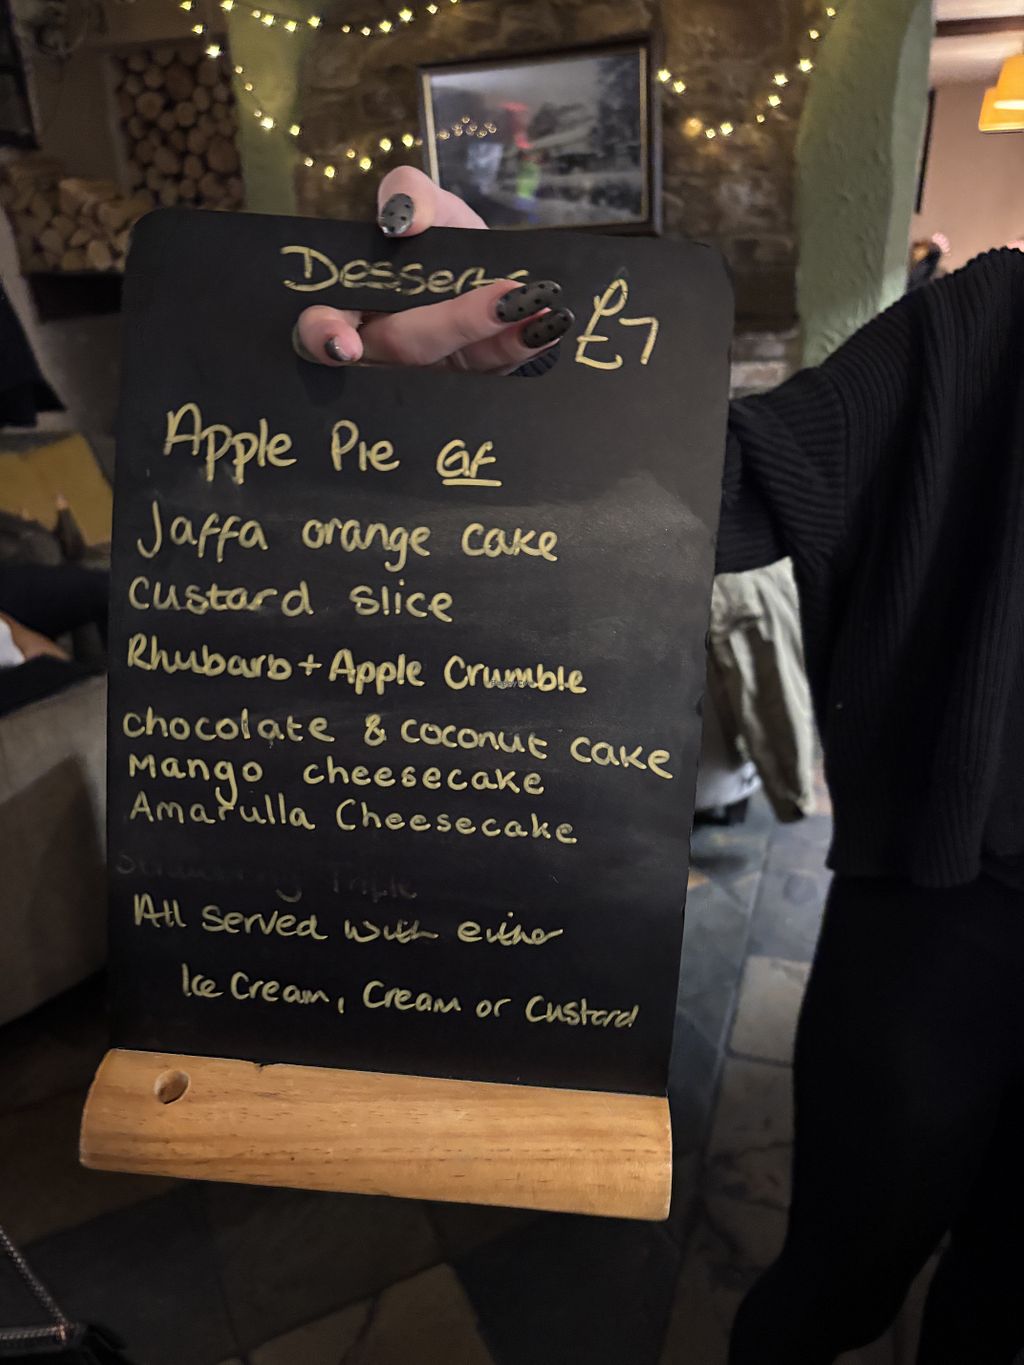 Desserts
£7
Apple Pie GF
Jaffa orange cake
Custard slice
Rhubarb + Apple Crumble
chocolate & coconut cake
Mango cheesecake
Amarulla Cheesecake
All served with either
Ice Cream, Cream or Custard